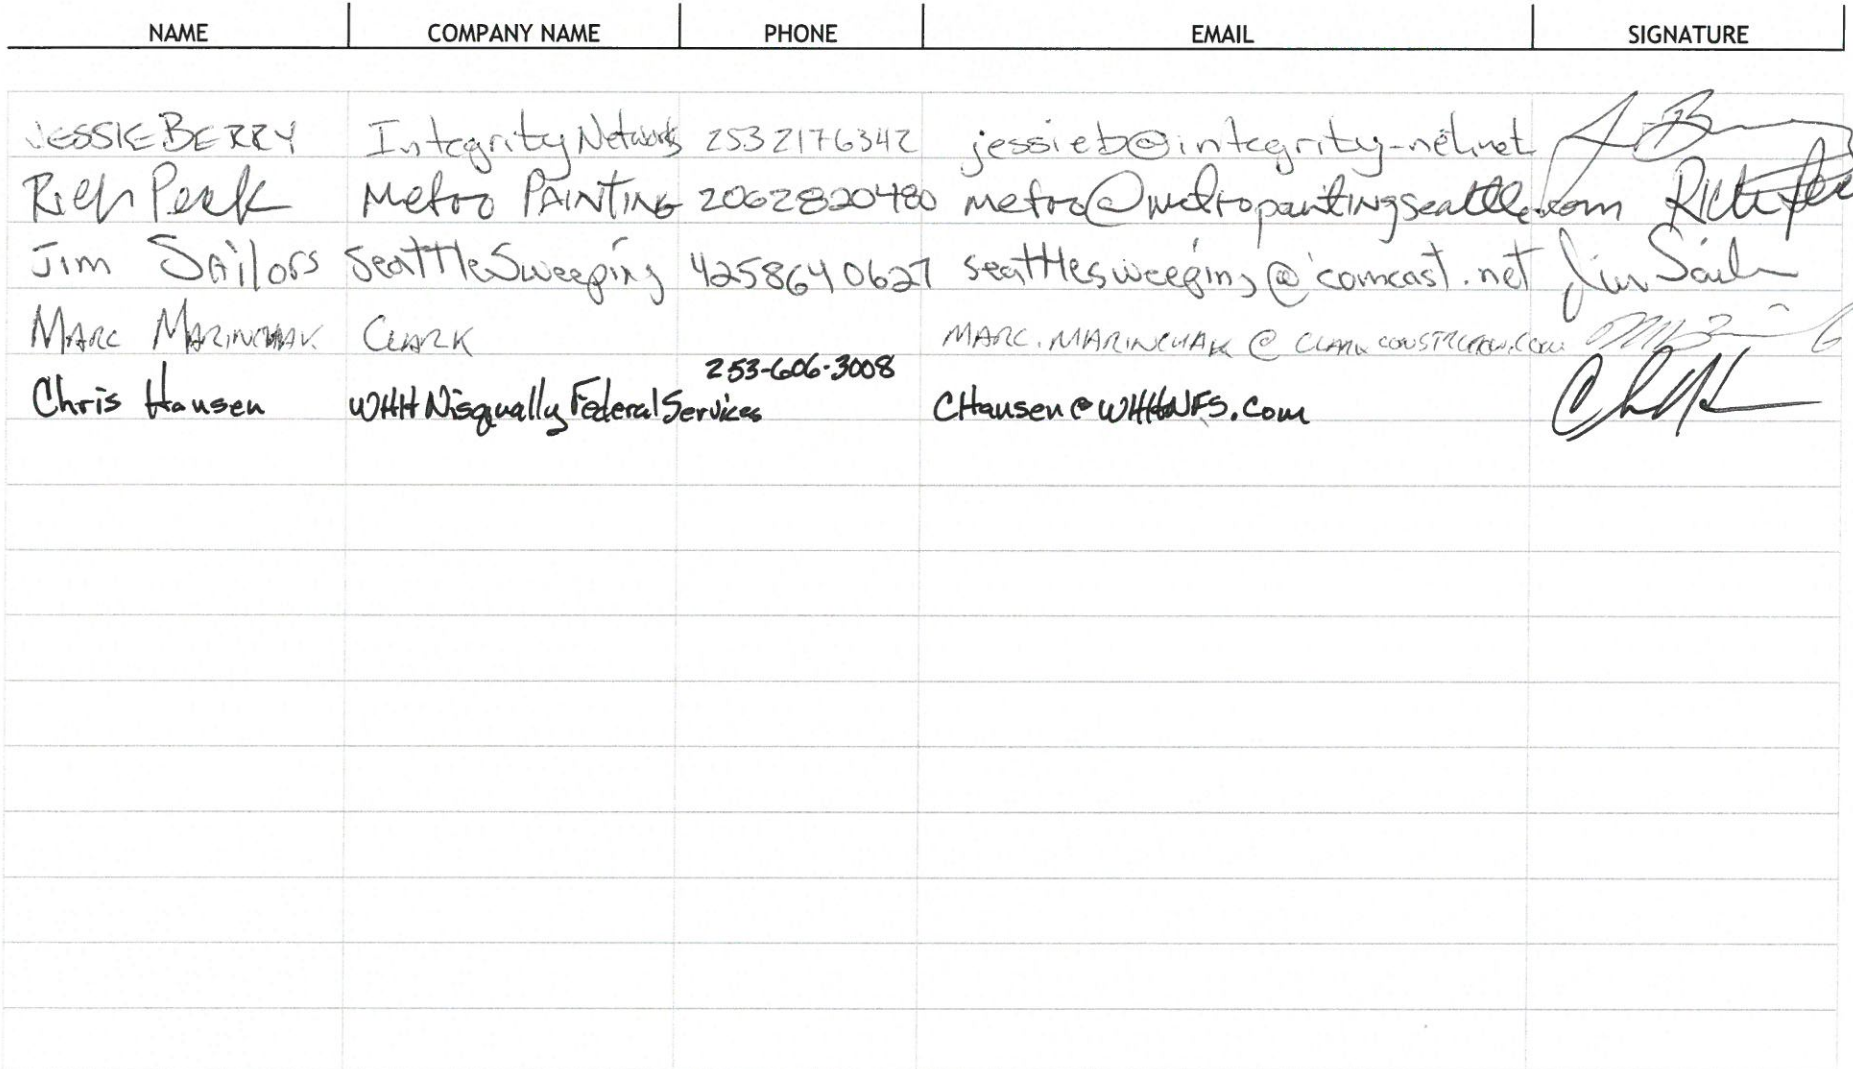 NAME COMPANY NAME PHONE EMAIL SIGNATURE
JESSIE BERRY Integrity Networks 2532176342 jessieb@integrity-net.net
Rich Peek Metro PAINTING 2062820480 metro@metropaintingseattle.com Rich Pee
Jim Sailors Seattle Sweeping 4258640627 seattlesweeping@comcast.net Jim Sail
MARC MARINCHAK CLARK MARC.MARINCHAK @ CLARKCONSTRUCTION.COM
253-606-3008
Chris Hansen WHH Nisqually Federal Services CHansen@WHHNFS.com